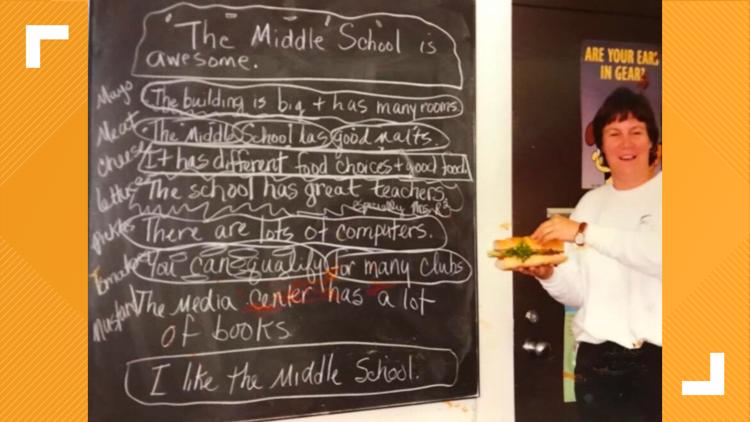 The Middle School is
awesome.
Mayo
The building is big + has many rooms.
Meat
The Middle School has good malts.
cheese
It has different food choices + good food.
lettuce
The school has great teachers,
especially Mrs. R
pickles
There are lots of computers.
Tomatoes
You can qualify for many clubs
Mustard
The Media center has a lot
of books
I like the Middle School.
ARE YOUR EARS
IN GEAR?